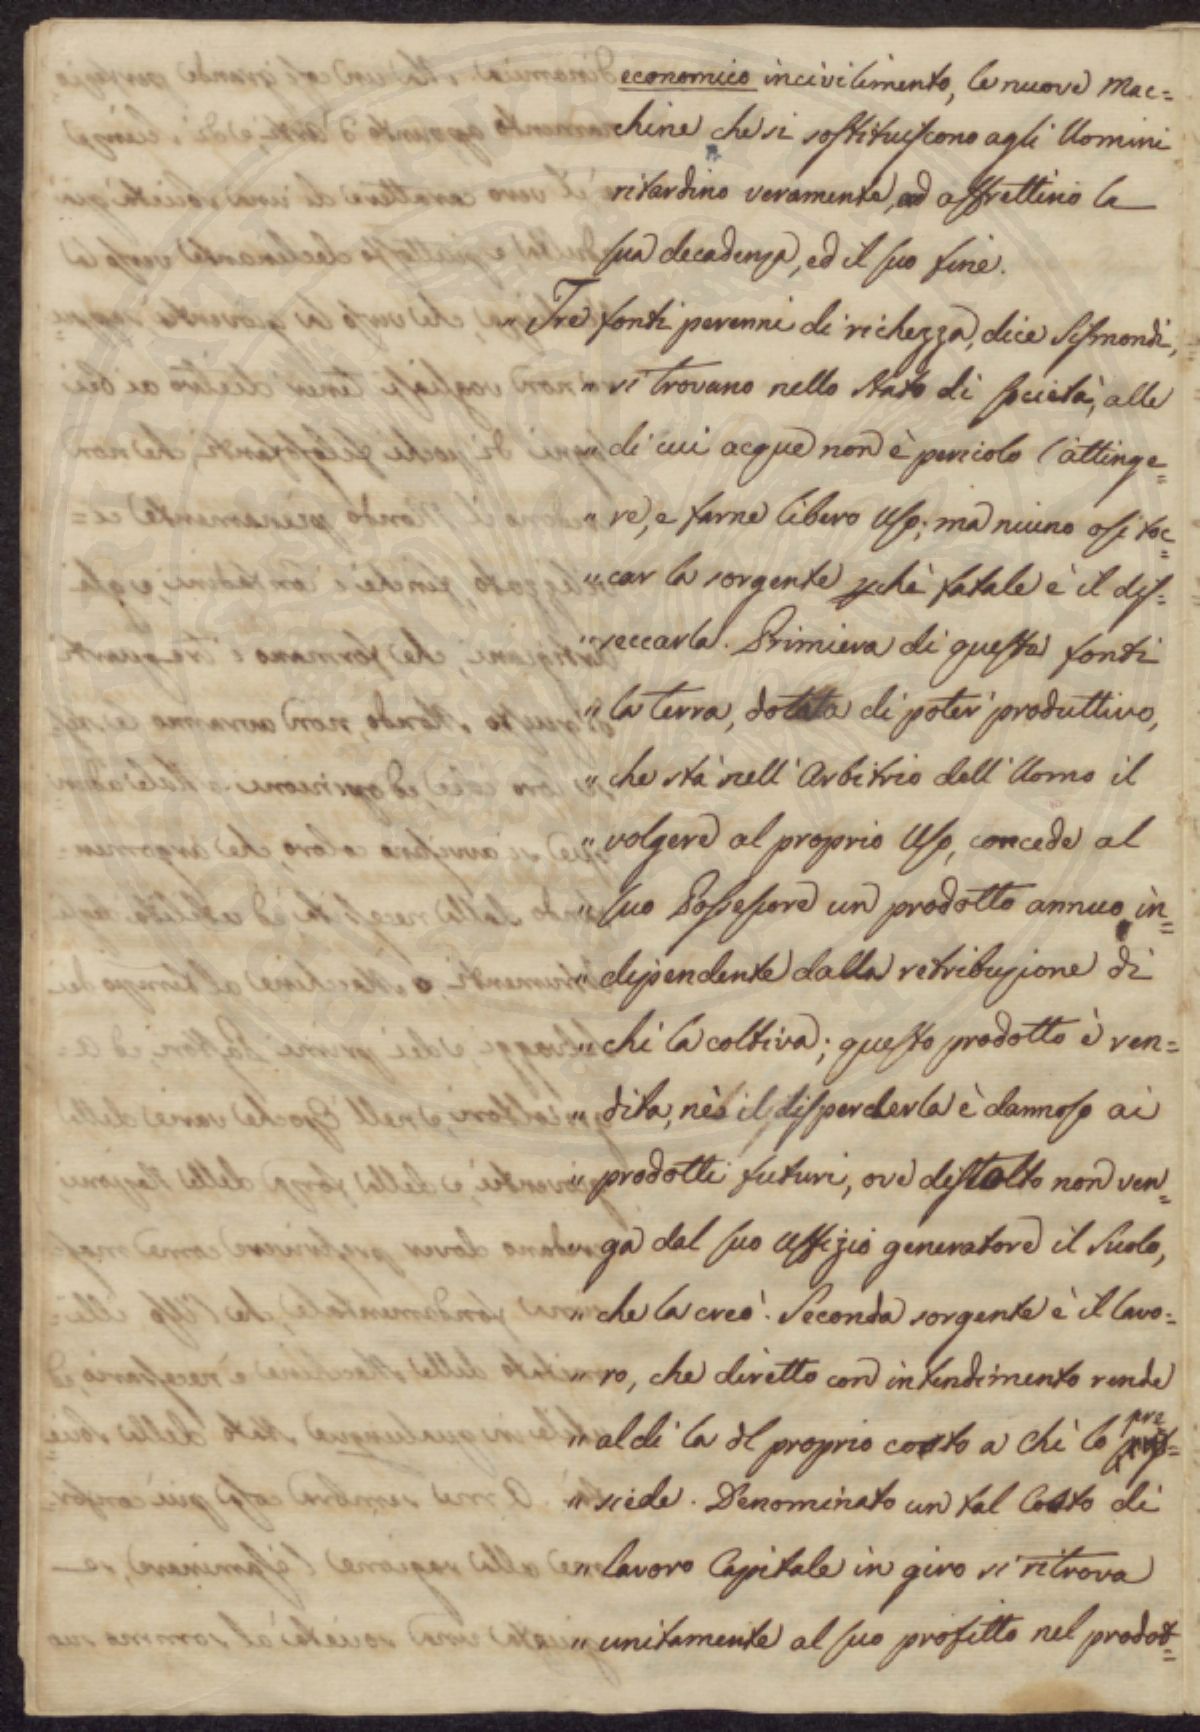 economico incivilimento, le nuove Mac=
chine che si sostituiscono agli Uomini
ritardino veramente, od affrettino la
sua decadenza, ed il suo fine.
„ Tre fonti perenni di richezza, dice Sismondi,
„ si trovano nello stato di società, alle
„ di cui acque non è pericolo l'attinge=
„ re, e farne libero Uso; ma niuno osi toc=
„ car la sorgente, chè fatale è il dis=
„ seccarla. Primiera di queste fonti
„ la terra, dotata di poter produttivo,
„ che stà nell'Arbitrio dell'Uomo il
„ volgere al proprio Uso, concede al
„ suo Possessore un prodotto annuo in=
„ dipendente dalla retribuzione di
„ chi la coltiva; questo prodotto è ren=
„ dita, nè il disperderla è dannoso ai
„ prodotti futuri, ove distolto non ven=
„ ga dal suo Uffizio generatore il Suolo,
„ che la creò. Seconda sorgente è il lavo=
„ ro, che diretto con intendimento rende
„ al di là del proprio costo a chi lo pre=
„ siede. Denominato un tal Costo di
„ lavoro Capitale in giro si ritrova
„ unitamente al suo profitto nel prodot=